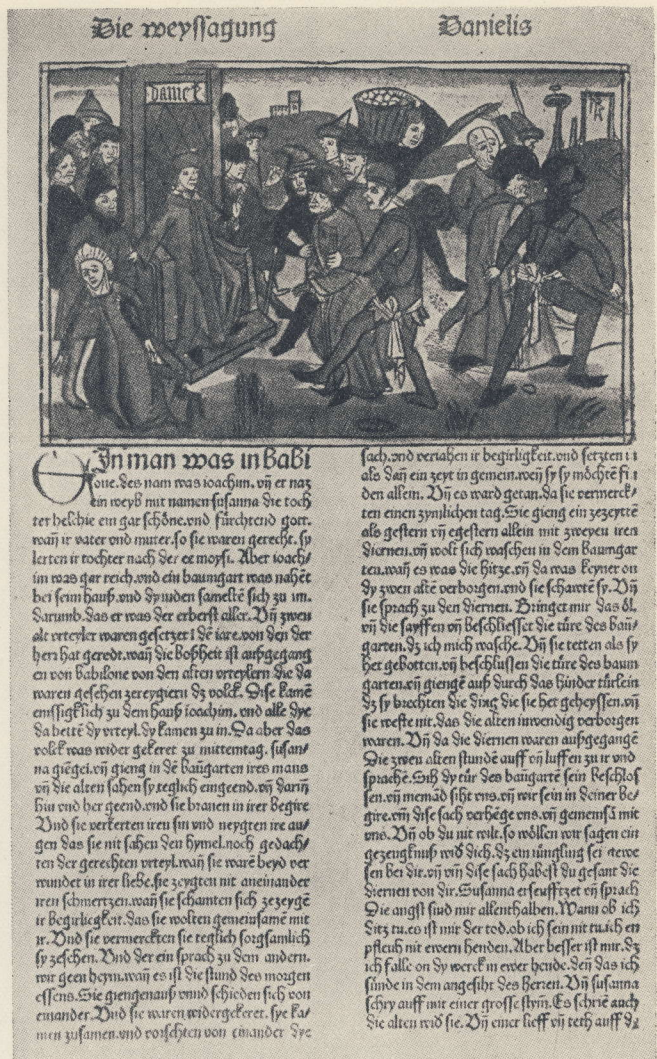 Die weyssagung
Danielis
daniel
EIn man was in babi
lone. des nam was ioachim. vñ er nam
ein weyb mit namen susanna die toch
ter helchie ein gar schöne. vnd fürchtend gott.
wañ ir vater vnd muter. so sie waren gerecht. sy
lerten ir tochter nach der ee moysi. Aber ioach/
im was gar reich. vnd ein baumgart was nahēt
bei seim hauß. vnd dy iuden samelte sich zu im.
darumb. das er was der erberst aller. Vñ zwen
alt vrteyler waren gesetzet i dē iare. von den der
herr hat geredt. wañ die boßheit ist außgegang
en von babilone von den alten vrteylern die da
waren gesehen zereygiern dz volck. Dise kamē
emssigklich zu dem hauß ioachim. vnd alle dye
da hettē dy vrteyl. dy kamen zu in. Da aber das
volck was wider gekeret zu mittemtag. susan/
na giēg ei. vñ gieng in dē baūgarten ires mans
vñ die alten sahen sy teglich eingeend. vñ darin
hin vnd her geend. vnd sie branen in irer begire
Vnd sie verkerten iren sin vnd neygten ire au/
gen das sie nit sahen den hymel. noch gedach/
ten der gerechten vrteyl. wañ sie warē beyd ver
wundet in irer liebe. sie zeygten nit aneinander
iren schmertzen. wañ sie schamten sich zezeygē
ir begirligkeit. das sie wolten gemeinsamē mit
ir. Vnd sie vermerckten sie teglich sorgsamlich
sy zesehen. Vnd der ein sprach zu dem andern.
wir geen heym. wañ es ist die stund des morgen
essens. Sie giengen auß vnnd schieden sich von
einander. Vnd sie waren widergekeret. sye ka/
men zusamen. vnd vorschten von einander dye
sach. vnd veriahen ir begirligkeit. vnd setzten
als dañ ein zeyt in gemein. weñ sy sy möchtē fi
den allein. Vñ es ward getan. da sie vermerck/
ten einen zymlichen tag. Sie gieng ein zezeytē
als gestern vñ egestern allein mit zweyen iren
diernen. vñ wolt sich waschen in dem baumgar
ten. wañ es was die hitze. vñ da was keyner on
dy zwen altē verborgen. vnd sie schawtē sy. Vñ
sie sprach zu den diernen. Bringet mir das öl.
vñ die sayffen vñ beschliesset die türe des baū/
garten. dz ich mich wasche. Vñ sie tetten als sy
het gebotten. vñ beschlussen die türe des baum
garten. vñ giengē auß durch das hinder türlein
dz sy brechten die ding die sie het geheyssen. vñ
sie weste nit. das die alten inwendig verborgen
waren. Vñ da die diernen waren außgegangē
Die zwen alten stundē auff vñ luffen zu ir vnd
sprachē. Sih dy tür des baūgartē sein beschlos
sen. vñ niemād siht vns. vñ wir sein in deiner be/
gire. vm dise sach verhēge vns. vñ gemeinsā mit
vns. Vñ ob du nit wilt. so wöllen wir sagen ein
gezeugknuß wid dich. dz ein iüngling sei gewe
sen bei dir. vñ vm dise sach habest du gesant die
diernen von dir. Susanna erseufftzet vñ sprach
Die angst sind mir allenthalben. Wann ob ich
ditz tu. es ist mir der tod. ob ich sein nit tu. ich en
pfleuh nit ewern henden. Aber besser ist mir. dz
ich falle on dy werck in ewer hende. deñ das ich
sünde in dem angesiht des herren. Vñ susanna
schry auff mit einer grosse stym. Es schrie auch
die alten wid sie. Vñ einer lieff vñ teth auff dz